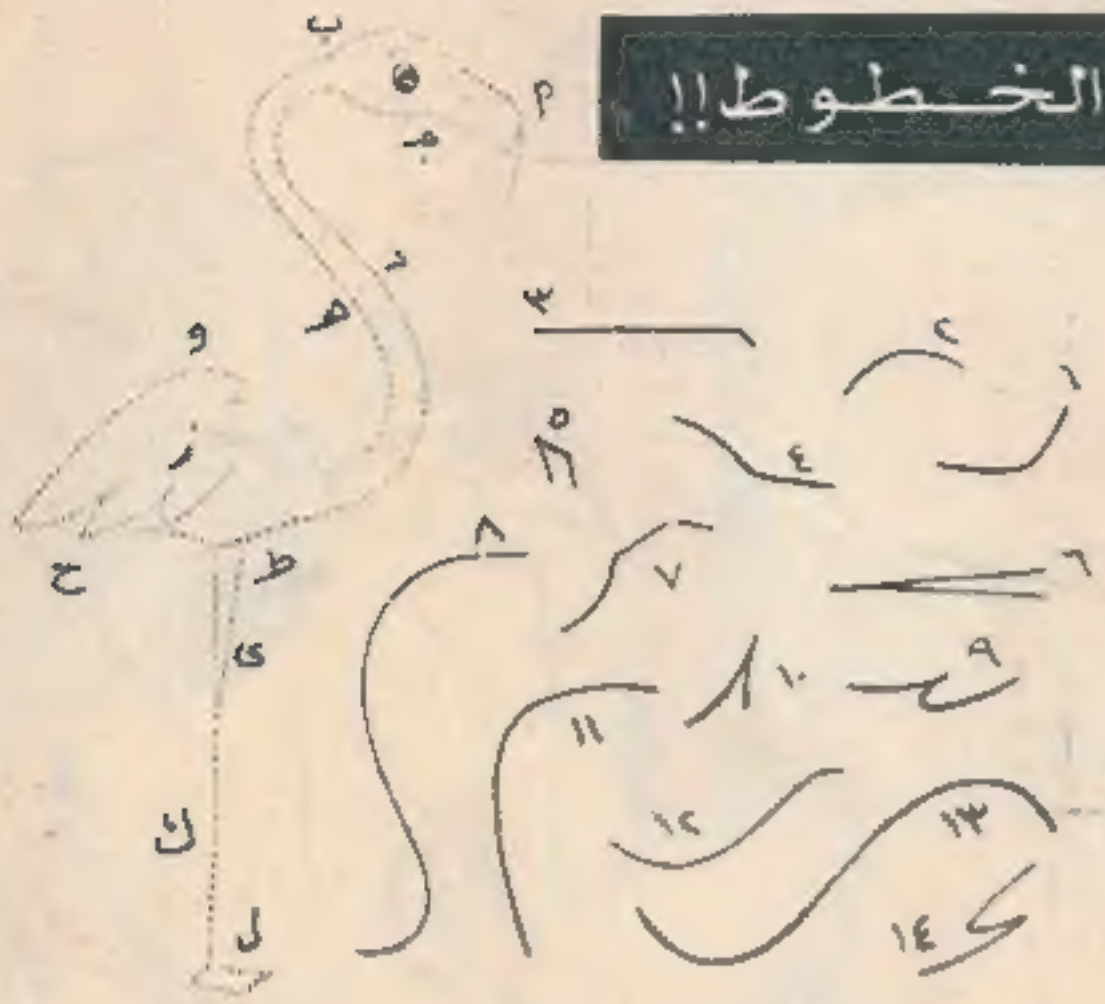 الخطوط!!
ب
م
جـ
د
هـ
و
ر
ح
ط
ى
ك
ل
١
٢
٣
٤
٥
٦
٧
٨
٩
١٠
١١
١٢
١٣
١٤